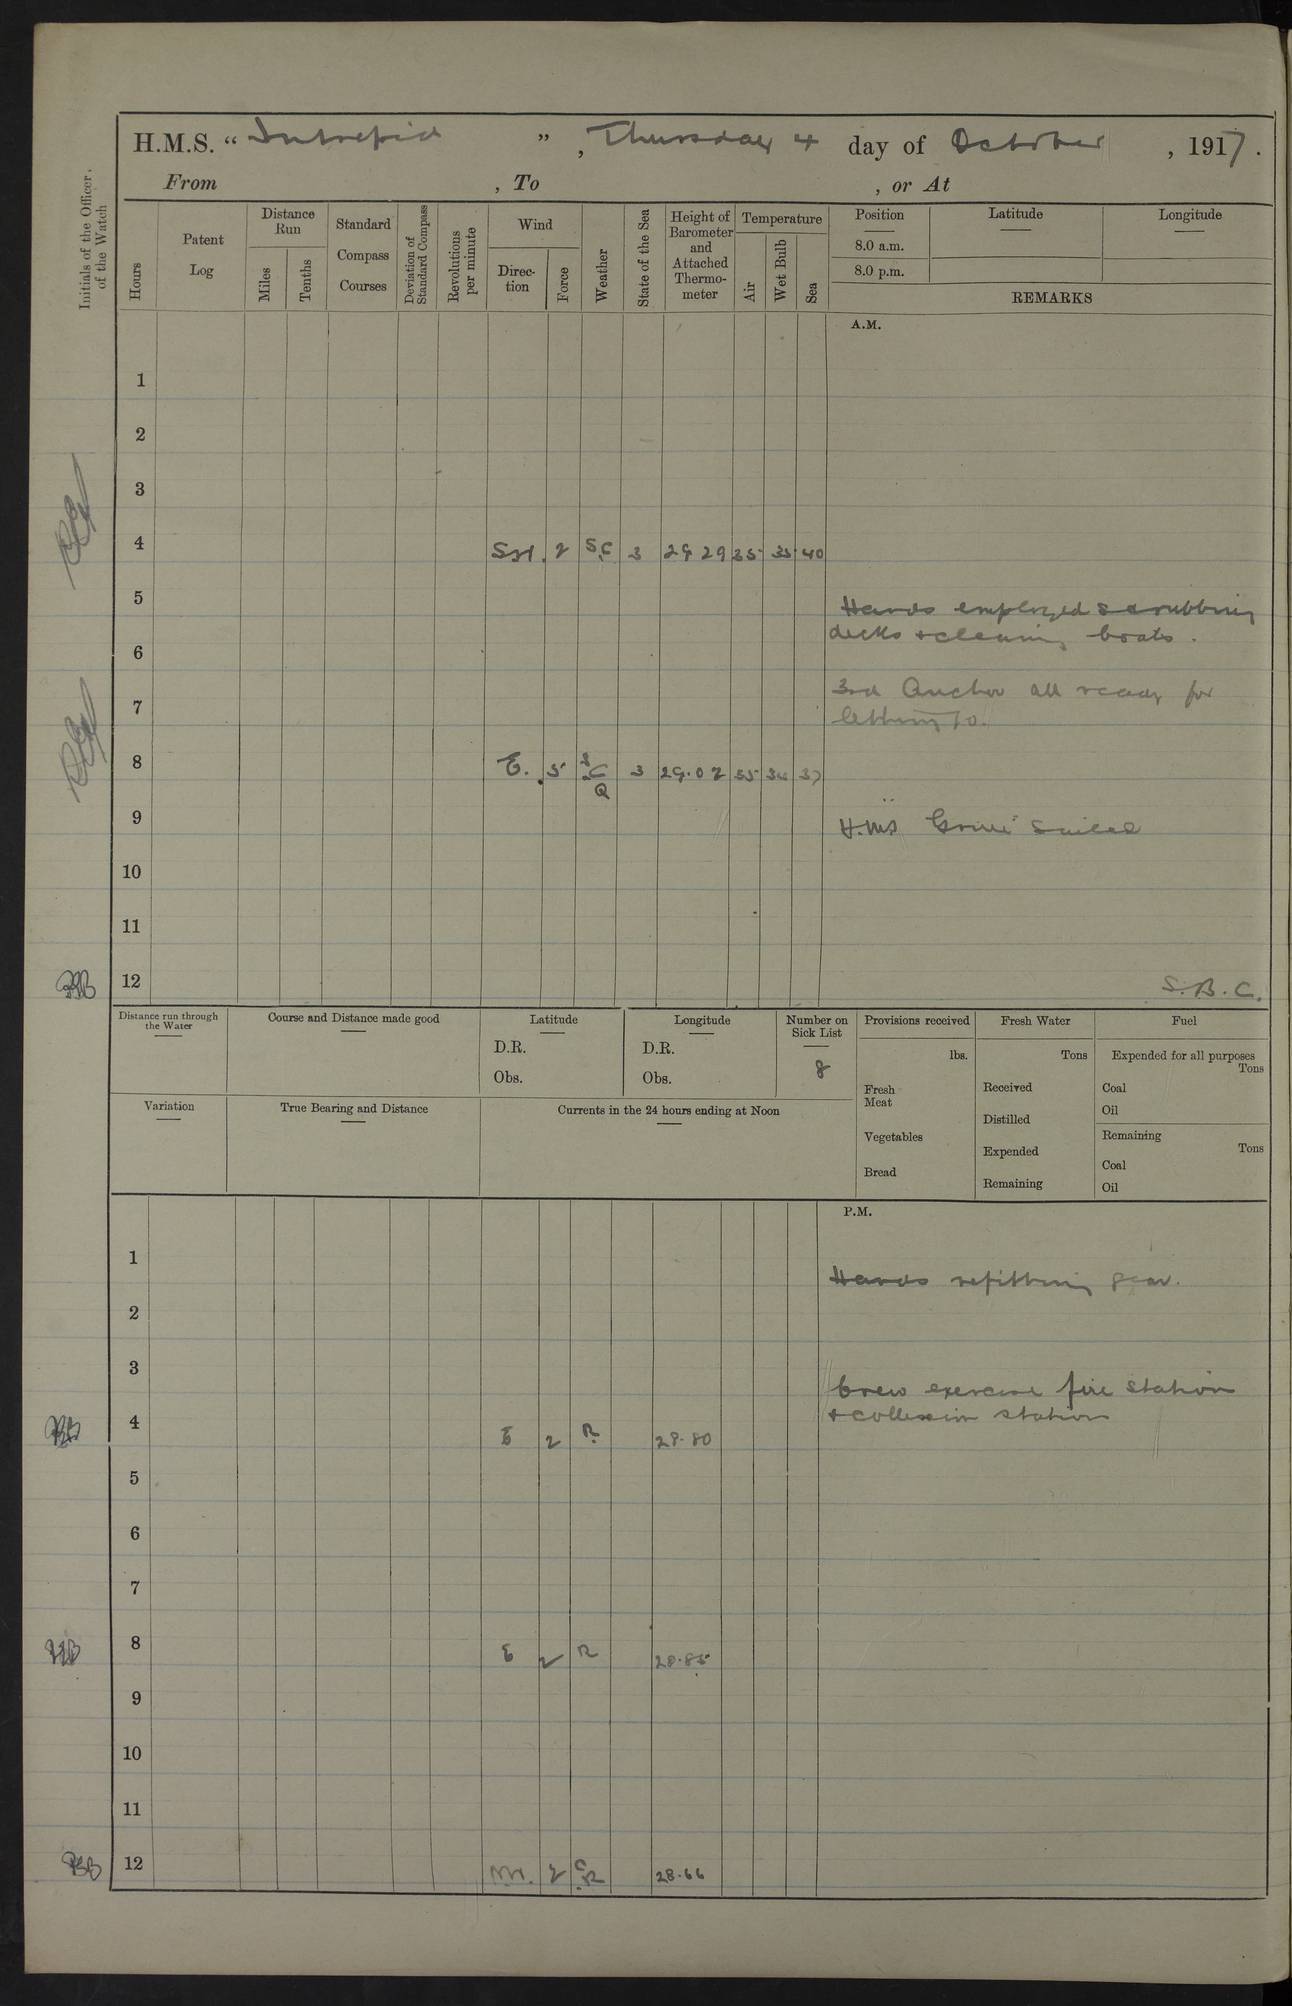 H.M.S. “ Intrepid ” , Thursday 4 day of October , 1917.
From , To , or At
Initials of the Officer, of the Watch
Hours
Patent Log
Distance Run
Miles
Tenths
Standard Compass Courses
Deviation of Standard Compass
Revolutions per minute
Wind
Direc-tion
Force
Weather
State of the Sea
Height of Barometer and Attached Thermo-meter
Temperature
Air
Wet Bulb
Sea
Position
8.0 a.m.
8.0 p.m.
Latitude
Longitude
REMARKS
A.M.
1
2
3
4 SW. 2 S.C 3 29 29 35 35 40
5 Hands employed scrubbing
decks & cleaning boats.
6
3rd Anchor all ready for
7 letting go.
8 E. 5 S.C Q 3 29.02 35 34 37
9 H.M.S sailed
10
11
12 S.B.C.
Distance run through the Water
Course and Distance made good
Latitude
D.R.
Obs.
Longitude
D.R.
Obs.
Number on Sick List
8
Provisions received
lbs.
Fresh Meat
Vegetables
Bread
Fresh Water
Tons
Received
Distilled
Expended
Remaining
Fuel
Expended for all purposes
Tons
Coal
Oil
Remaining
Tons
Coal
Oil
Variation
True Bearing and Distance
Currents in the 24 hours ending at Noon
P.M.
1 Hands refitting gear.
2
3 Crew exercise fire station
& collision station
4 E 2 R. 28.80
5
6
7
8 E 2 R 28.85
9
10
11
12 NW. 2 C.R 28.66